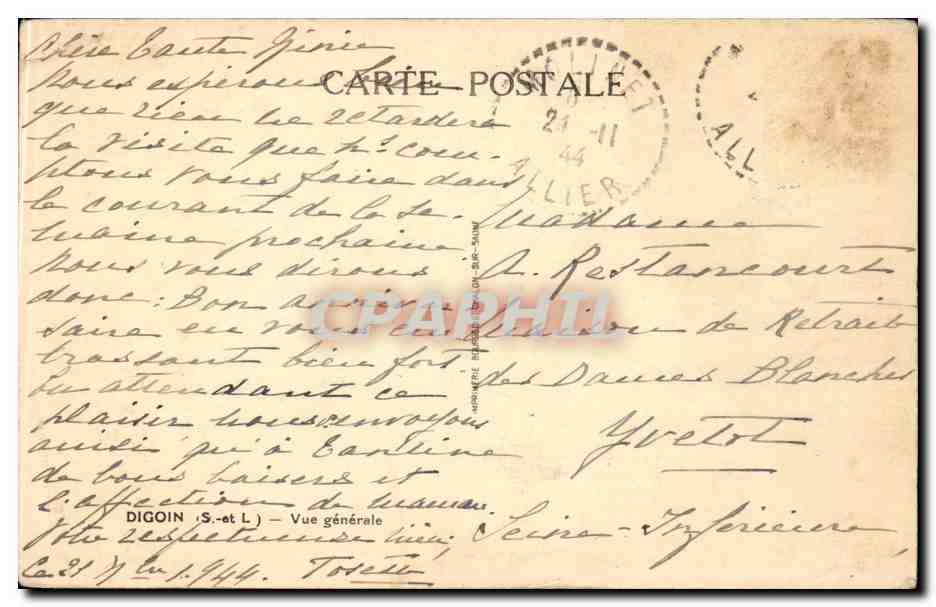 Chère Tante Ninie
Nous espérons bien
que rien ne retardera
la visite que ns. comp-
ptons vous faire dans
le courant de la se-
maine prochaine
nous vous dirons
donc : Bon anniver
saire en vous em
brassant bien fort
En attendant ce
plaisir nous envoyons
ainsi qu'à Tantine
de bons baisers et
l'affection de maman.
Votre respectueuse nièce,
Ce 21 Nbre 1944. Tosette
CARTE POSTALE
21 -11
44
ALLIER
ALL
Madame
A. Restancourt
Maison de Retraite
des Dames Blanches
Yvetot
Seine-Inférieure
DIGOIN (S.-et L.) — Vue générale
CPAPHIL